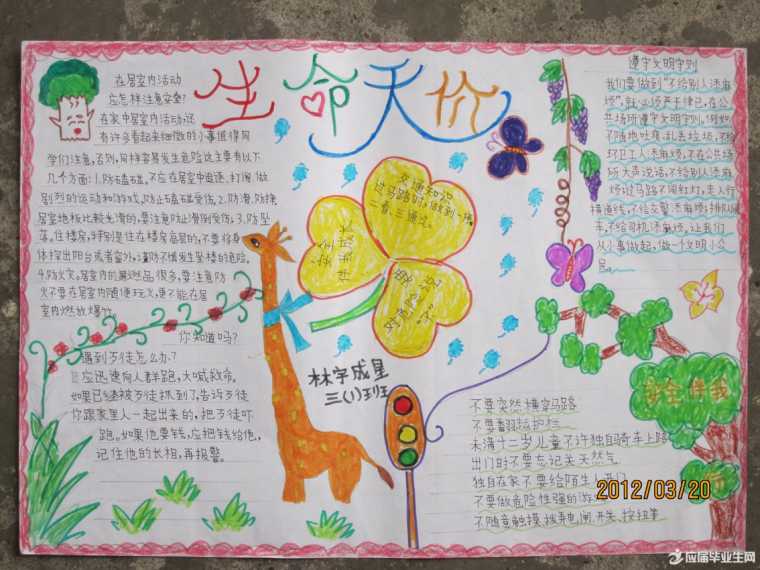 生命天价
在居室内活动
应怎样注意安全?
在家中居室内活动,还
有许多看起来细微的小事值得同
学们注意,否则,同样容易发生危险这主要有以下
几个方面:1.防磕碰。不应在居室中追逐、打闹,做
剧烈的运动和游戏,防止磕碰受伤。2.防滑、防摔
居室地板比较光滑的,要注意防止滑倒受伤。3.防坠
落。住楼房,特别是住在楼房高层的,不要将身
体探出阳台或者窗外,谨防不慎发生坠楼的危险。
4.防火灾。居室内的易燃品很多,要注意防
火不要在居室内随便玩火,更不能在居
室内燃放爆竹。
你知道吗?
遇到歹徒怎么办?
应迅速向人群跑,大喊救命。
如果已经被歹徒抓到了,告诉歹徒
你跟家里人一起出来的,把歹徒吓
跑。如果他要钱,应把钱给他,
记住他的长相,再报警。
交通知识
过马路时,做到一停
二看,三通过。
林宇成星
三(1)班
遵守文明守则
我们要做到“不给别人添麻
烦”,就必须严于律己,在公
共场所遵守文明守则,例如
不随地吐痰,乱丢垃圾,不给
环卫工人添麻烦,不在公共场
所大声说话,不给别人添麻
烦过马路不闯红灯,走人行
横道线,不给交警添麻烦;排队乘
车,不给司机添麻烦,让我们
从小事做起,做一个文明小公
民。
安全伴我
行
不要突然横穿马路
不要翻越护栏
未满十二岁儿童不许独自骑车上路
出门时不要忘记关天然气
独自在家不要给陌生人开门
不要做危险性强的游
不随意触摸、拨弄电闸、开关、按扭等
2012/03/20
应届毕业生网